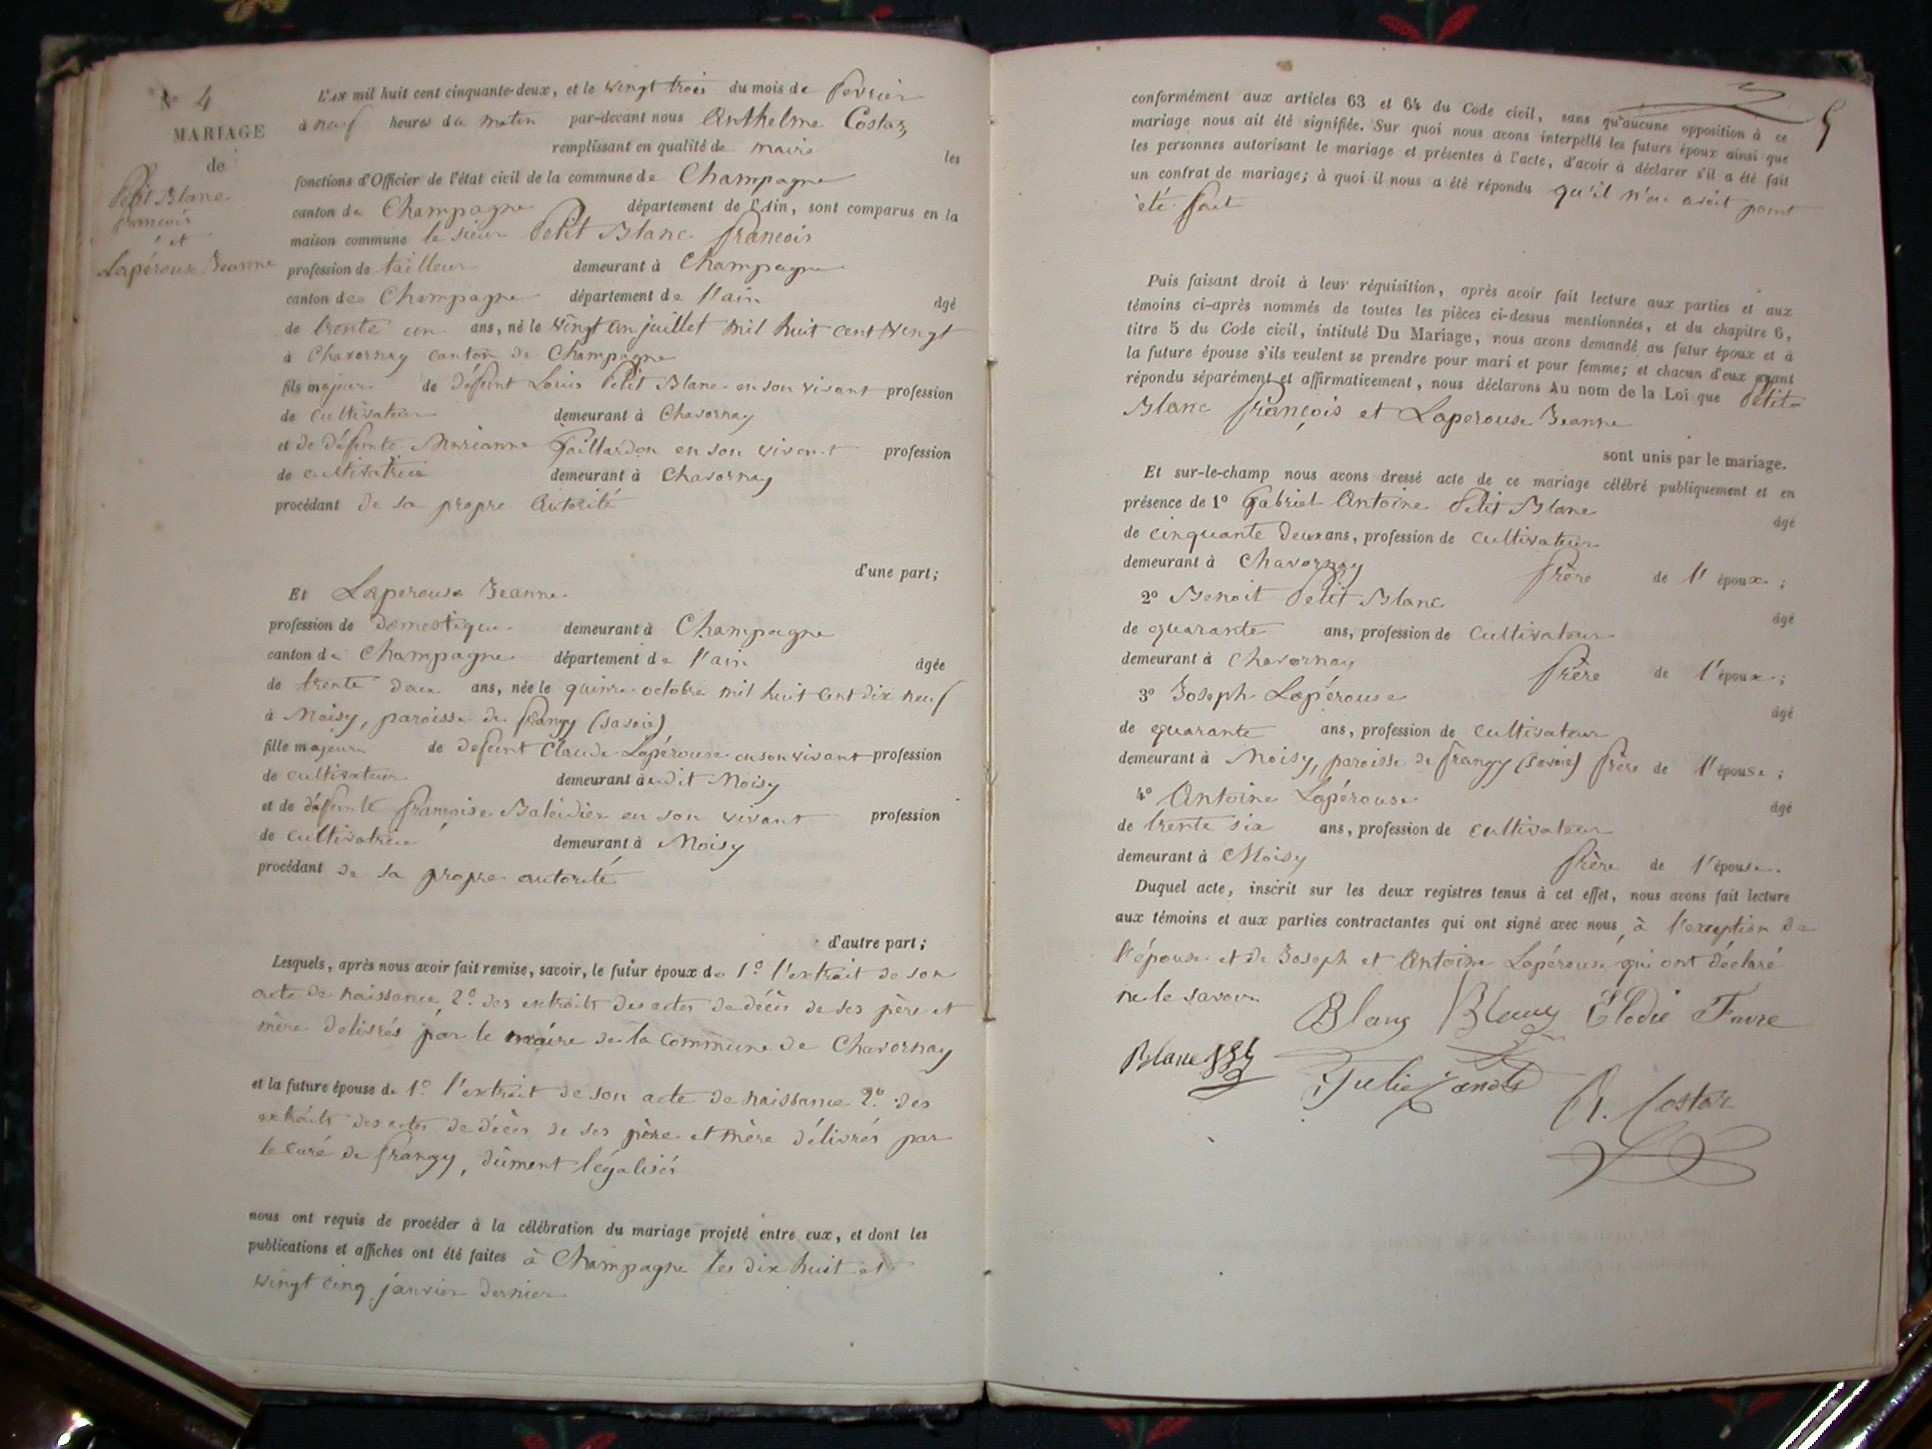 N° 4
MARIAGE
de
Petit Blanc
françois
et
Lapérouse Jeanne
L'AN mil huit cent cinquante-deux, et le vingt trois du mois de fevrier
à neuf heures du matin par-devant nous Anthelme Costaz
remplissant en qualité de maire les
fonctions d'Officier de l'état civil de la commune de Champagne
canton de Champagne département de l'Ain, sont comparus en la
maison commune le sieur Petit Blanc françois
profession de tailleur demeurant à Champagne
canton de Champagne département de l'ain âgé
de trente un ans, né le vingt un juillet mil huit cent vingt
à Chavornay canton de Champagne
fils majeur de défunt Louis Petit Blanc en son vivant profession
de cultivateur demeurant à Chavornay
et de défunte Marianne Gaillardon en son vivant profession
de cultivatrice demeurant à Chavornay
procédant de sa propre autorité
d'une part;
Et Laperouse Jeanne
profession de domestique demeurant à Champagne
canton de Champagne département de l'ain âgée
de trente deux ans, née le quinze octobre mil huit cent dix neuf
à Moisy, paroisse de frangy (savoie)
fille majeure de defunt Claude Lapérouse en son vivant profession
de cultivateur demeurant à dit Moisy
et de défunte françoise en son vivant profession
de cultivatrice demeurant à Moisy
procédant de sa propre autorité
d'autre part;
Lesquels, après nous avoir fait remise, savoir, le futur époux de 1° l'extrait de son
acte de naissance, 2° des extraits des actes de décès de ses père et
mère délivrés par le maire de la commune de Chavornay
et la future épouse de 1° l'extrait de son acte de naissance 2° des
extraits des actes de décès de ses père et mère délivrés par
le curé de frangy, dûment légalisés
nous ont requis de procéder à la célébration du mariage projeté entre eux, et dont les
publications et affiches ont été faites à Champagne les dix huit et
vingt cinq janvier dernier
5
conformément aux articles 63 et 64 du Code civil, sans qu'aucune opposition à ce
mariage nous ait été signifiée. Sur quoi nous avons interpellé les futurs époux ainsi que
les personnes autorisant le mariage et présentes à l'acte, d'avoir à déclarer s'il a été fait
un contrat de mariage; à quoi il nous a été répondu qu'il n'en avoit point
été fait
Puis faisant droit à leur réquisition, après avoir fait lecture aux parties et aux
témoins ci-après nommés de toutes les pièces ci-dessus mentionnées, et du chapitre 6,
titre 5 du Code civil, intitulé Du Mariage, nous avons demandé au futur époux et à
la future épouse s'ils veulent se prendre pour mari et pour femme; et chacun d'eux ayant
répondu séparément et affirmativement, nous déclarons Au nom de la Loi que Petit
Blanc françois et Laperouse Jeanne
sont unis par le mariage.
Et sur-le-champ nous avons dressé acte de ce mariage célébré publiquement et en
présence de 1° Gabriel Antoine Petit Blanc âgé
de cinquante deux ans, profession de cultivateur
demeurant à Chavornay frère de l'époux;
2° Benoit Petit Blanc âgé
de quarante ans, profession de cultivateur
demeurant à Chavornay frère de l'époux;
3° Joseph Lapérouse âgé
de quarante ans, profession de cultivateur
demeurant à Moisy, paroisse de frangy (savoie) frère de l'épouse;
4° Antoine Lapérouse âgé
de trente six ans, profession de cultivateur
demeurant à Moisy frère de l'épouse.
Duquel acte, inscrit sur les deux registres tenus à cet effet, nous avons fait lecture
aux témoins et aux parties contractantes qui ont signé avec nous, à l'exception de
l'épouse et de Joseph et Antoine Lapérouse qui ont déclaré
ne le savoir
Blanc Blanc Élodie Favre
Blanc
Julie
A. Costaz